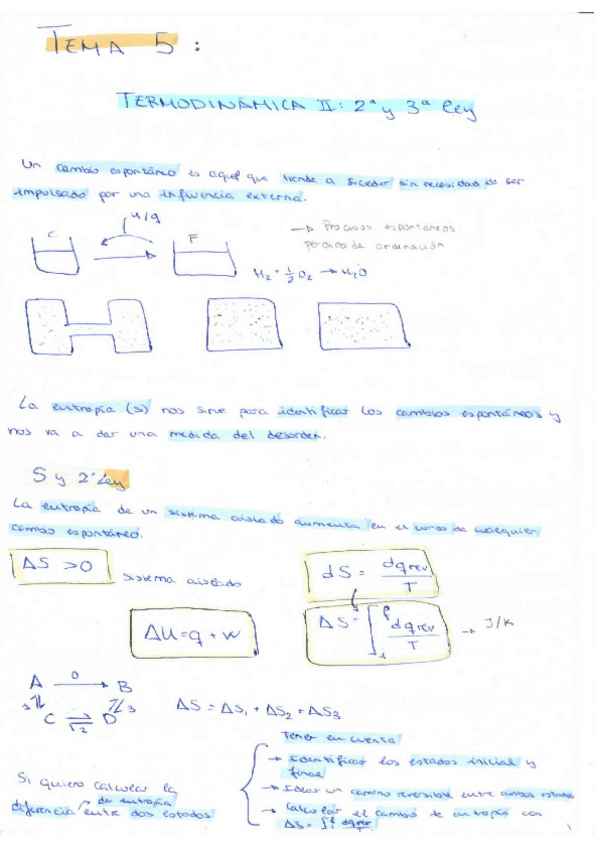 TEMA 5:
TERMODINÁMICA II: 2ª y 3ª ley
Un cambio espontáneo es aquel que tiende a suceder sin necesidad de ser
impulsado por una influencia externa.
w/q
C F
→ Procesos espontáneos:
pérdida de ordenación
H₂ + 1/2 O₂ → H₂O
La entropía (S) nos sirve para identificar los cambios espontáneos y
nos va a dar una medida del desorden.
S y 2ª Ley
La entropía de un sistema aislado aumenta en el curso de cualquier
cambio espontáneo.
ΔS > 0 sistema aislado
dS = dqrev / T
ΔU = q + w
ΔS = ∫ᵢᶠ dqrev / T → J/K
A → B
C ⇌ D
ΔS = ΔS₁ + ΔS₂ + ΔS₃
Si quiero calcular la
diferencia de entropía entre dos estados
Tener en cuenta
→ Identificar los estados inicial y
final
→ Idear un camino reversible entre ambos estados
→ Calcular el cambio de entropía con
ΔS = ∫ᵢᶠ dqrev / T